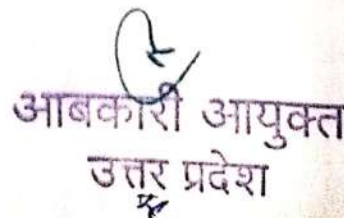 आबकारी आयुक्त
उत्तर प्रदेश